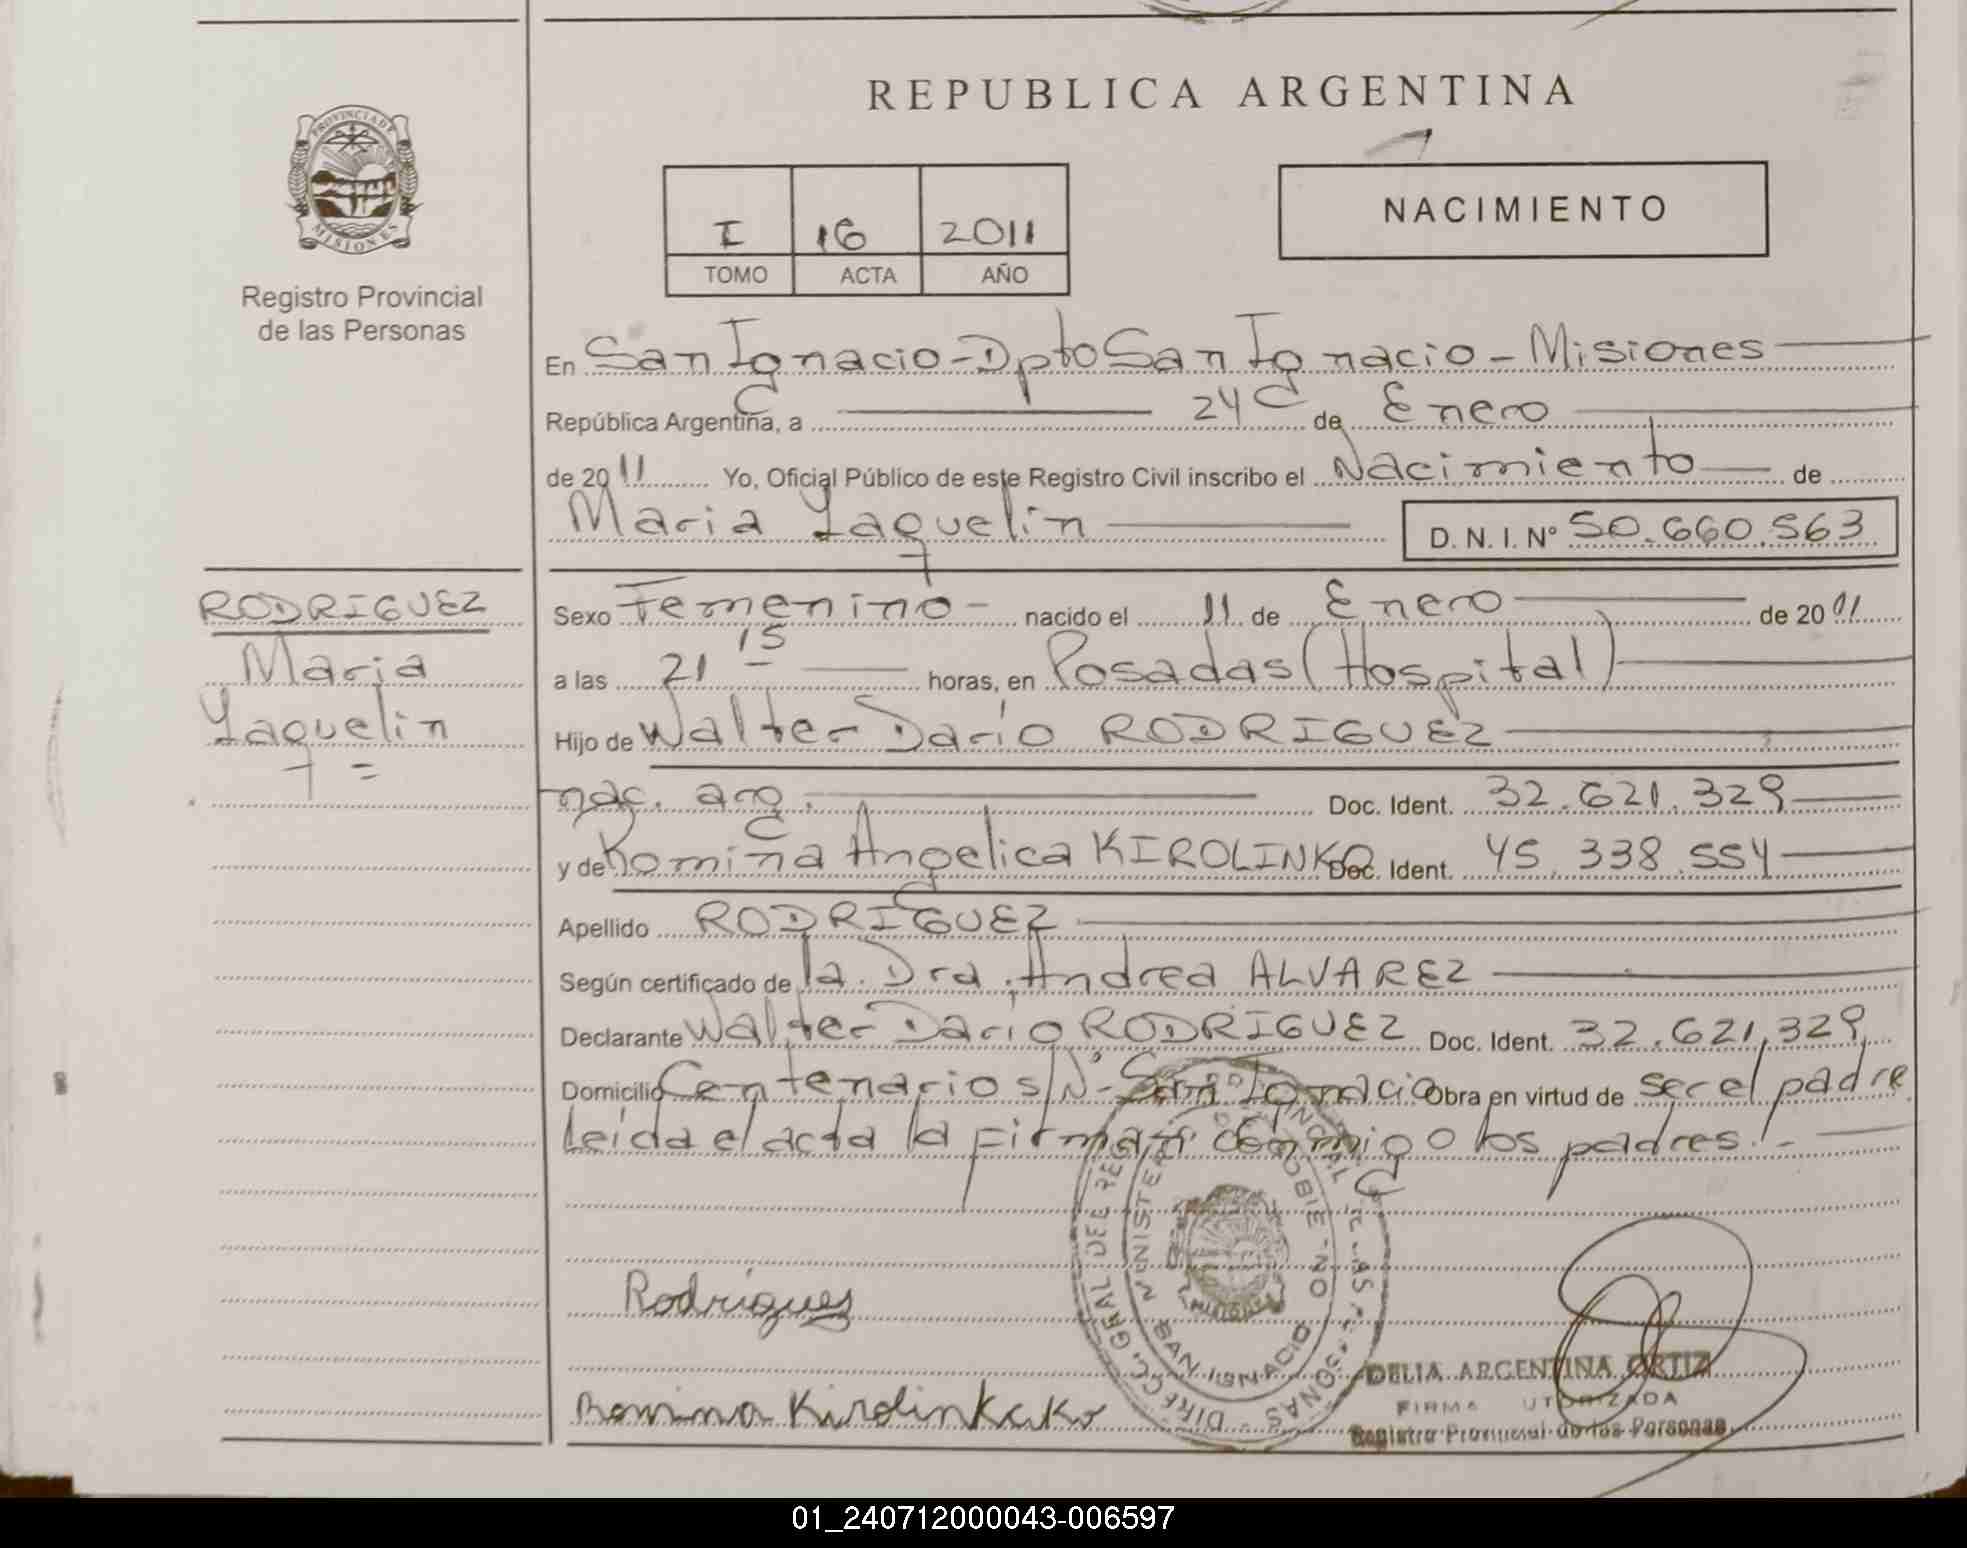 REPUBLICA ARGENTINA
PROVINCIA DE
MISIONES
Registro Provincial
de las Personas
I 16 2011
TOMO ACTA AÑO
NACIMIENTO
En San Ignacio - Dpto San Ignacio - Misiones
República Argentina, a 24 de Enero
de 2011 Yo, Oficial Público de este Registro Civil inscribo el Nacimiento de
Maria Yaquelin D. N. I. N° 50.660.563
RODRIGUEZ
Maria
Yaquelin
Sexo Femenino - nacido el 11 de Enero de 2011
a las 21 15 horas, en Posadas (Hospital)
Hijo de Walter Darío RODRIGUEZ
nac. arg. Doc. Ident. 32.621.329
y de Romina Angelica KIROLINKO Doc. Ident. 45.338.554
Apellido RODRIGUEZ
Según certificado de la. Dra. Andrea ALVAREZ
Declarante Walter Dario RODRIGUEZ Doc. Ident. 32.621.329
Domicilio Centenario s/N° - San Ignacio Obra en virtud de ser el padre
leída el acta la firman conmigo los padres. -
DIRECC. GRAL DE REG PROVINCIAL DE LAS PERSONAS
MINISTERIO DE GOBIERNO
SAN IGNACIO
Rodriguez
Romina Kirolinkcko
DELIA ARGENTINA ORTIZ
FIRMA AUTORIZADA
Registro Provincial de las Personas
01_240712000043-006597